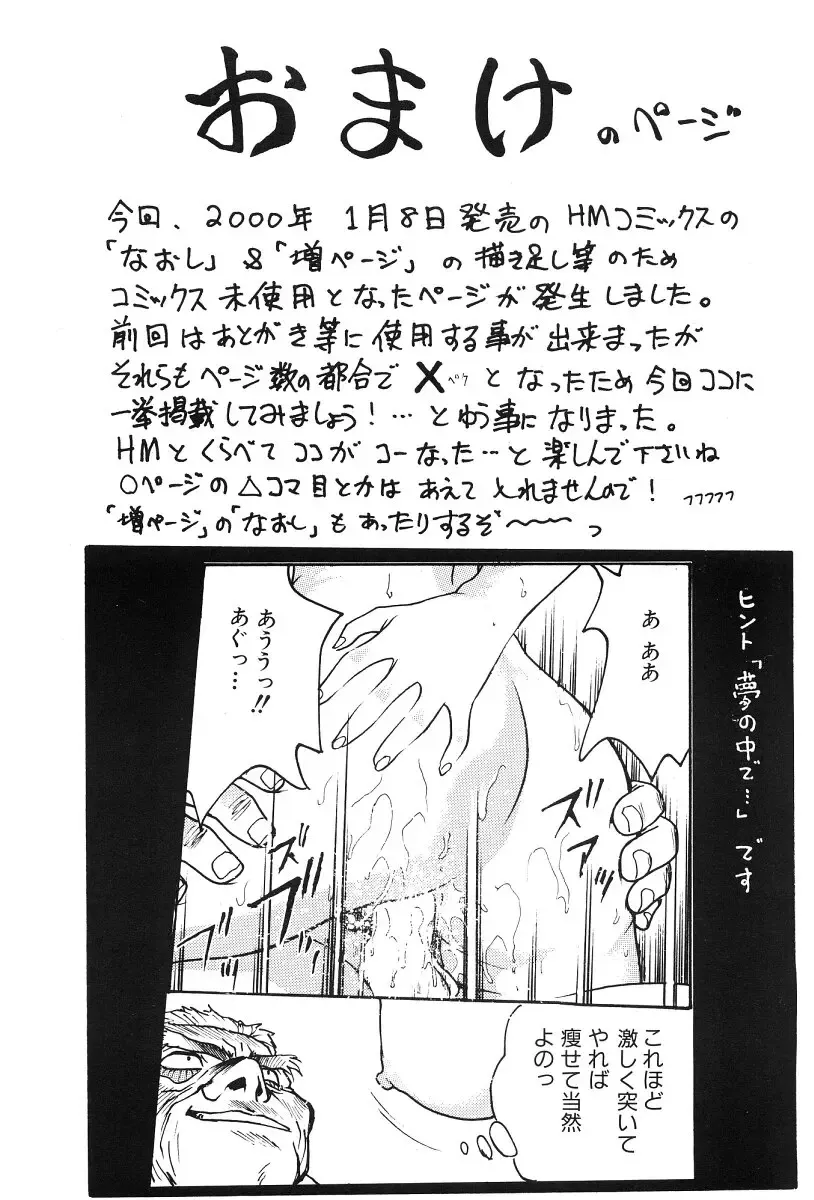 おまけのページ
今回、2000年 1月8日発売の HMコミックスの
「なおし」&「増ページ」の描き足し等のため
コミックス未使用となったページが発生しました。
前回はあとがき等に使用する事が出来まったが
それらもページ数の都合で Xペケ となったため今回ココに
一挙掲載してみましょう!…とゆう事になりました。
HMとくらべてココがコーなった…と楽しんで下さいね
○ページの△コマ目とかは あえて とれませんので! フフフフフ
「増ページ」の「なおし」もあったりするぞ〜〜〜っ
ヒント「夢の中で…」です
あ ああ
あううっ!!
あぐっ…
ズズッ
ズズッ
これほど
激しく突いて
やれば
痩せて当然
よのっ